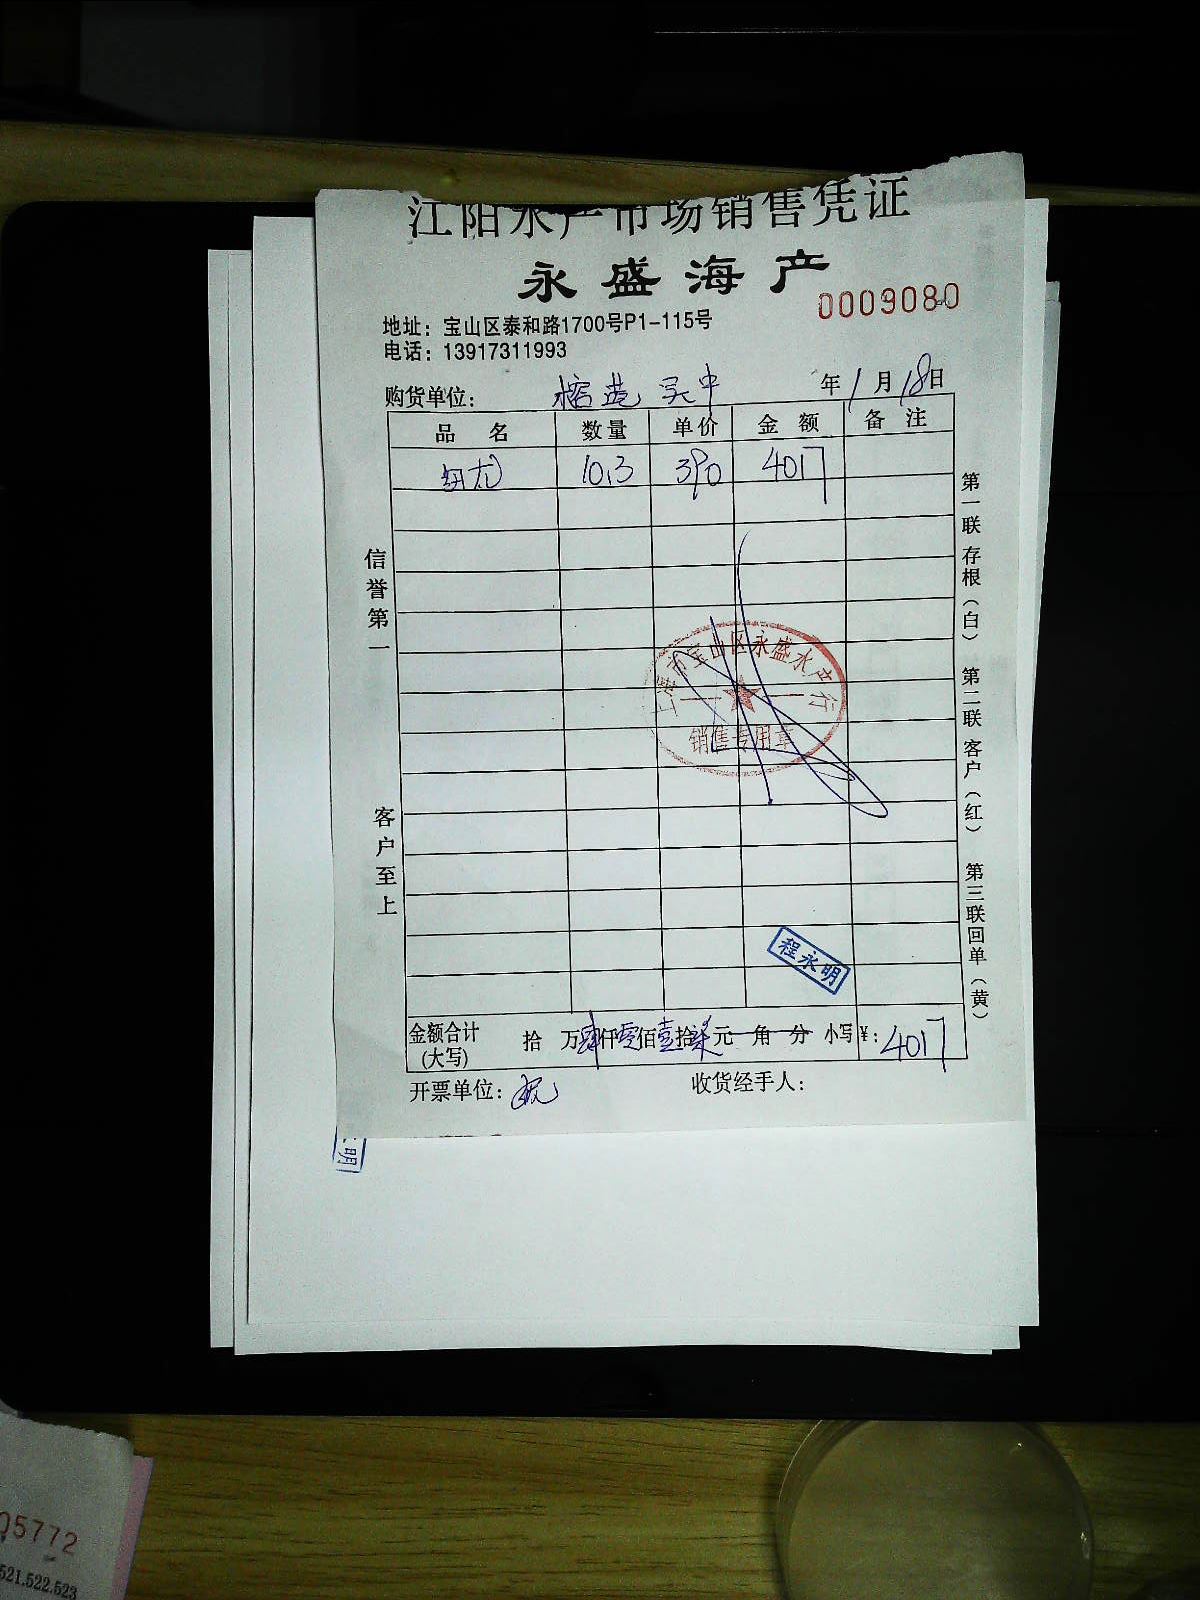 江阳水产市场销售凭证
永盛海产
0009080
地址：宝山区泰和路1700号P1-115号
电话：13917311993
购货单位： 年1月18日
品名 数量 单价 金额 备注
10.3 390 4017
信誉第一
客户至上
第一联 存根（白） 第二联 客户（红） 第三联 回单（黄）
上海市宝山区永盛水产行
销售专用章
程永明
金额合计（大写） 拾 万肆仟零佰壹拾柒元 角 分 小写￥：4017
开票单位： 收货经手人：
明
05772
521.522.523